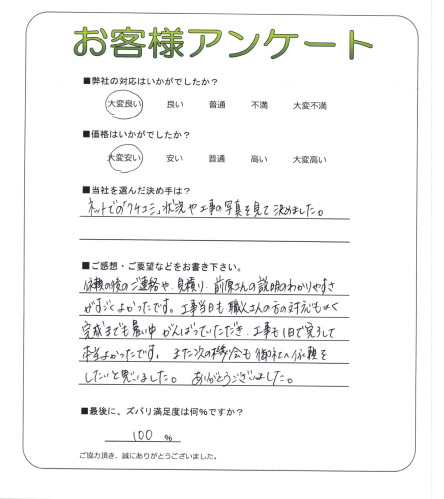 お客様アンケート
■弊社の対応はいかがでしたか?
大変良い 良い 普通 不満 大変不満
■価格はいかがでしたか?
大変安い 安い 普通 高い 大変高い
■当社を選んだ決め手は?
ネットでの「クチコミ」状況や工事の写真を見て決めました。
■ご感想・ご要望などをお書き下さい。
依頼の後のご連絡や、見積り、前原さんの説明のわかりやすさ
がすごくよかったです。工事当日も職人さんの方の対応もよく
完成までも暑い中がんばっていただき、工事も1日で完了して
本当よかったです。また次の機会も御社へ依頼を
したいと思いました。ありがとうございました。
■最後に、ズバリ満足度は何%ですか?
100 %
ご協力頂き、誠にありがとうございました。